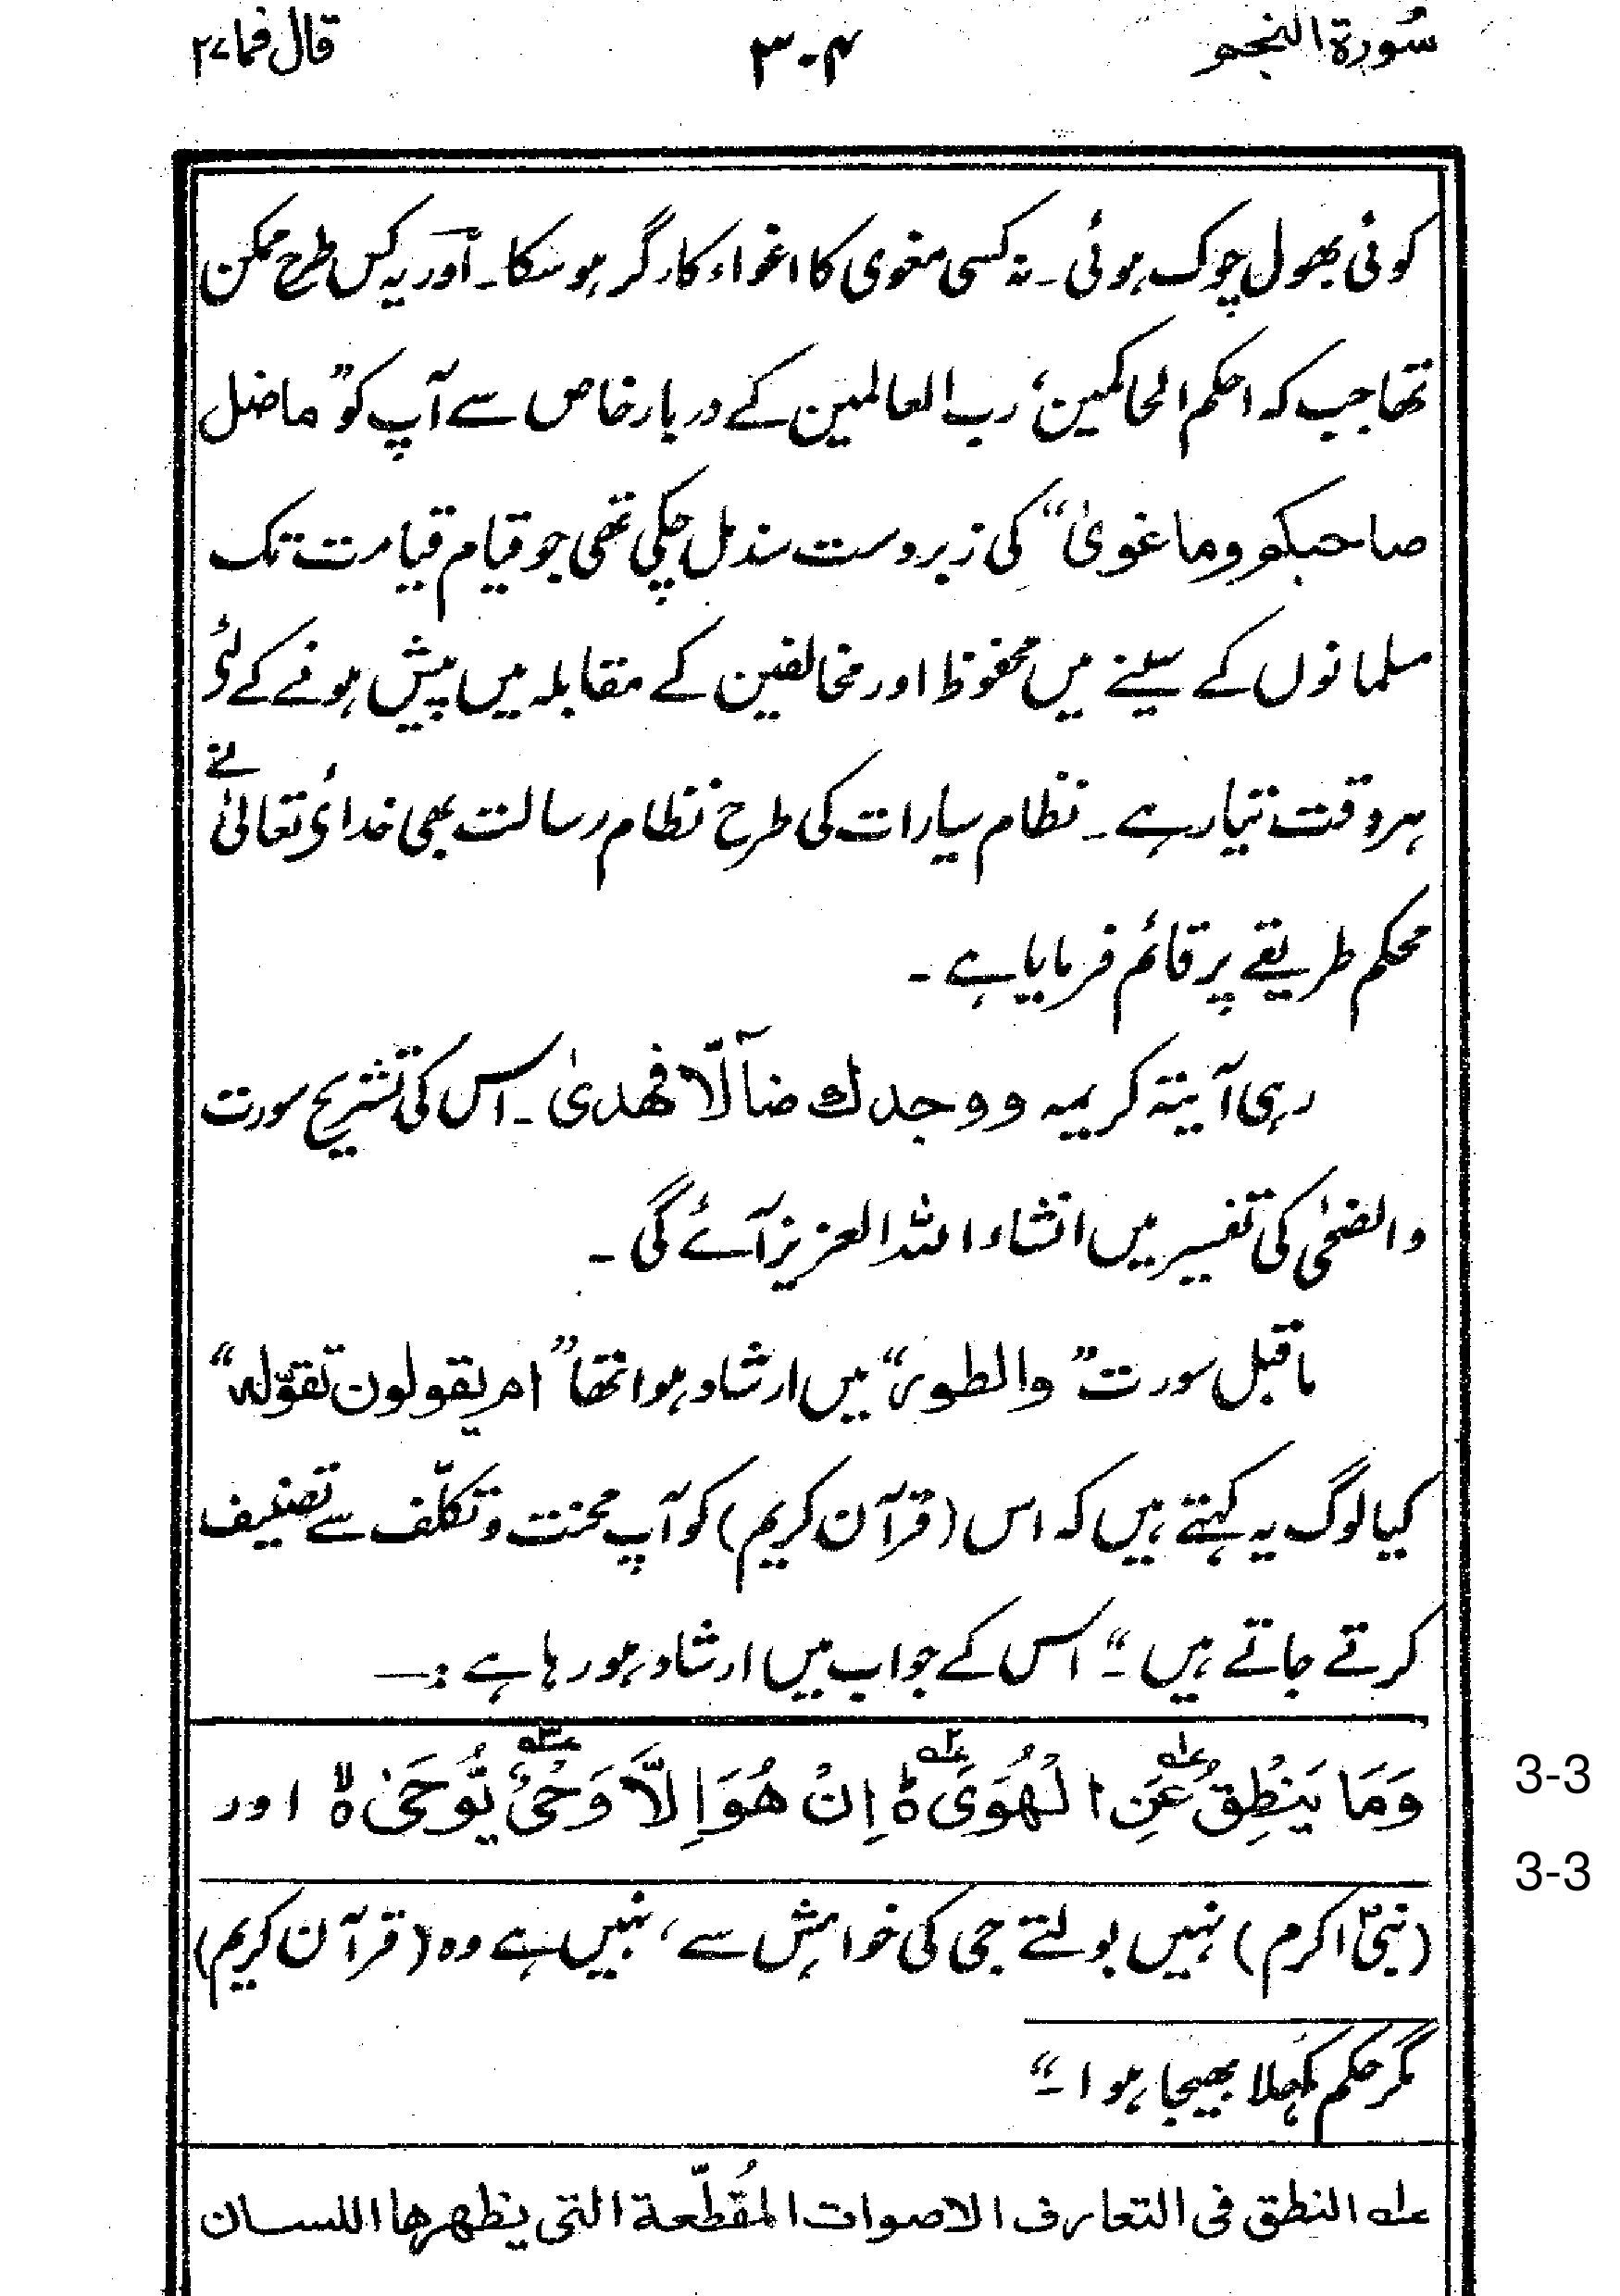 سُورة النجم
۳۰۴
قال فما ۲۷
کوئی بھول چوک ہوئی۔ نہ کسی مغوی کا اغواء کارگر ہو سکا۔ اور یہ کس طرح ممکن
تھا جب کہ احکم الحاکمین، رب العالمین کے دربار خاص سے آپ کو ”ماضل
صاحبکم وما غویٰ“ کی زبردست سند مل چکی تھی جو قیام قیامت تک
مسلمانوں کے سینے میں محفوظ اور مخالفین کے مقابلہ میں پیش ہونے کے لئے
ہر وقت تیار ہے۔ نظام سیارات کی طرح نظام رسالت بھی خدائے تعالیٰ نے
محکم طریقے پر قائم فرمایا ہے۔
رہی آیتہ کریمہ ووجدك ضآلّا فهدیٰ۔ اس کی تشریح سورت
والضحٰی کی تفسیر میں انشاء اللہ العزیز آئے گی۔
ماقبل سورت ”والطور“ میں ارشاد ہوا تھا ”ام یقولون تقوّله“
کیا لوگ یہ کہتے ہیں کہ اس (قرآن کریم) کو آپ محنت و تکلّف سے تصنیف
کرتے جاتے ہیں۔“ اس کے جواب میں ارشاد ہو رہا ہے :—
وَمَا يَنْطِقُ عَنِ الْهَوَىٰ ۝ إِنْ هُوَ إِلَّا وَحْيٌ يُّوحَىٰ ۝ اور
3-3
3-3
(نبیؐ اکرم) نہیں بولتے جی کی خواہش سے، نہیں ہے وہ (قرآن کریم)
مگر حکم کہلا بھیجا ہوا۔“
عله النطق فی التعارف الاصوات المُقطّعة التی یظهرها اللسان